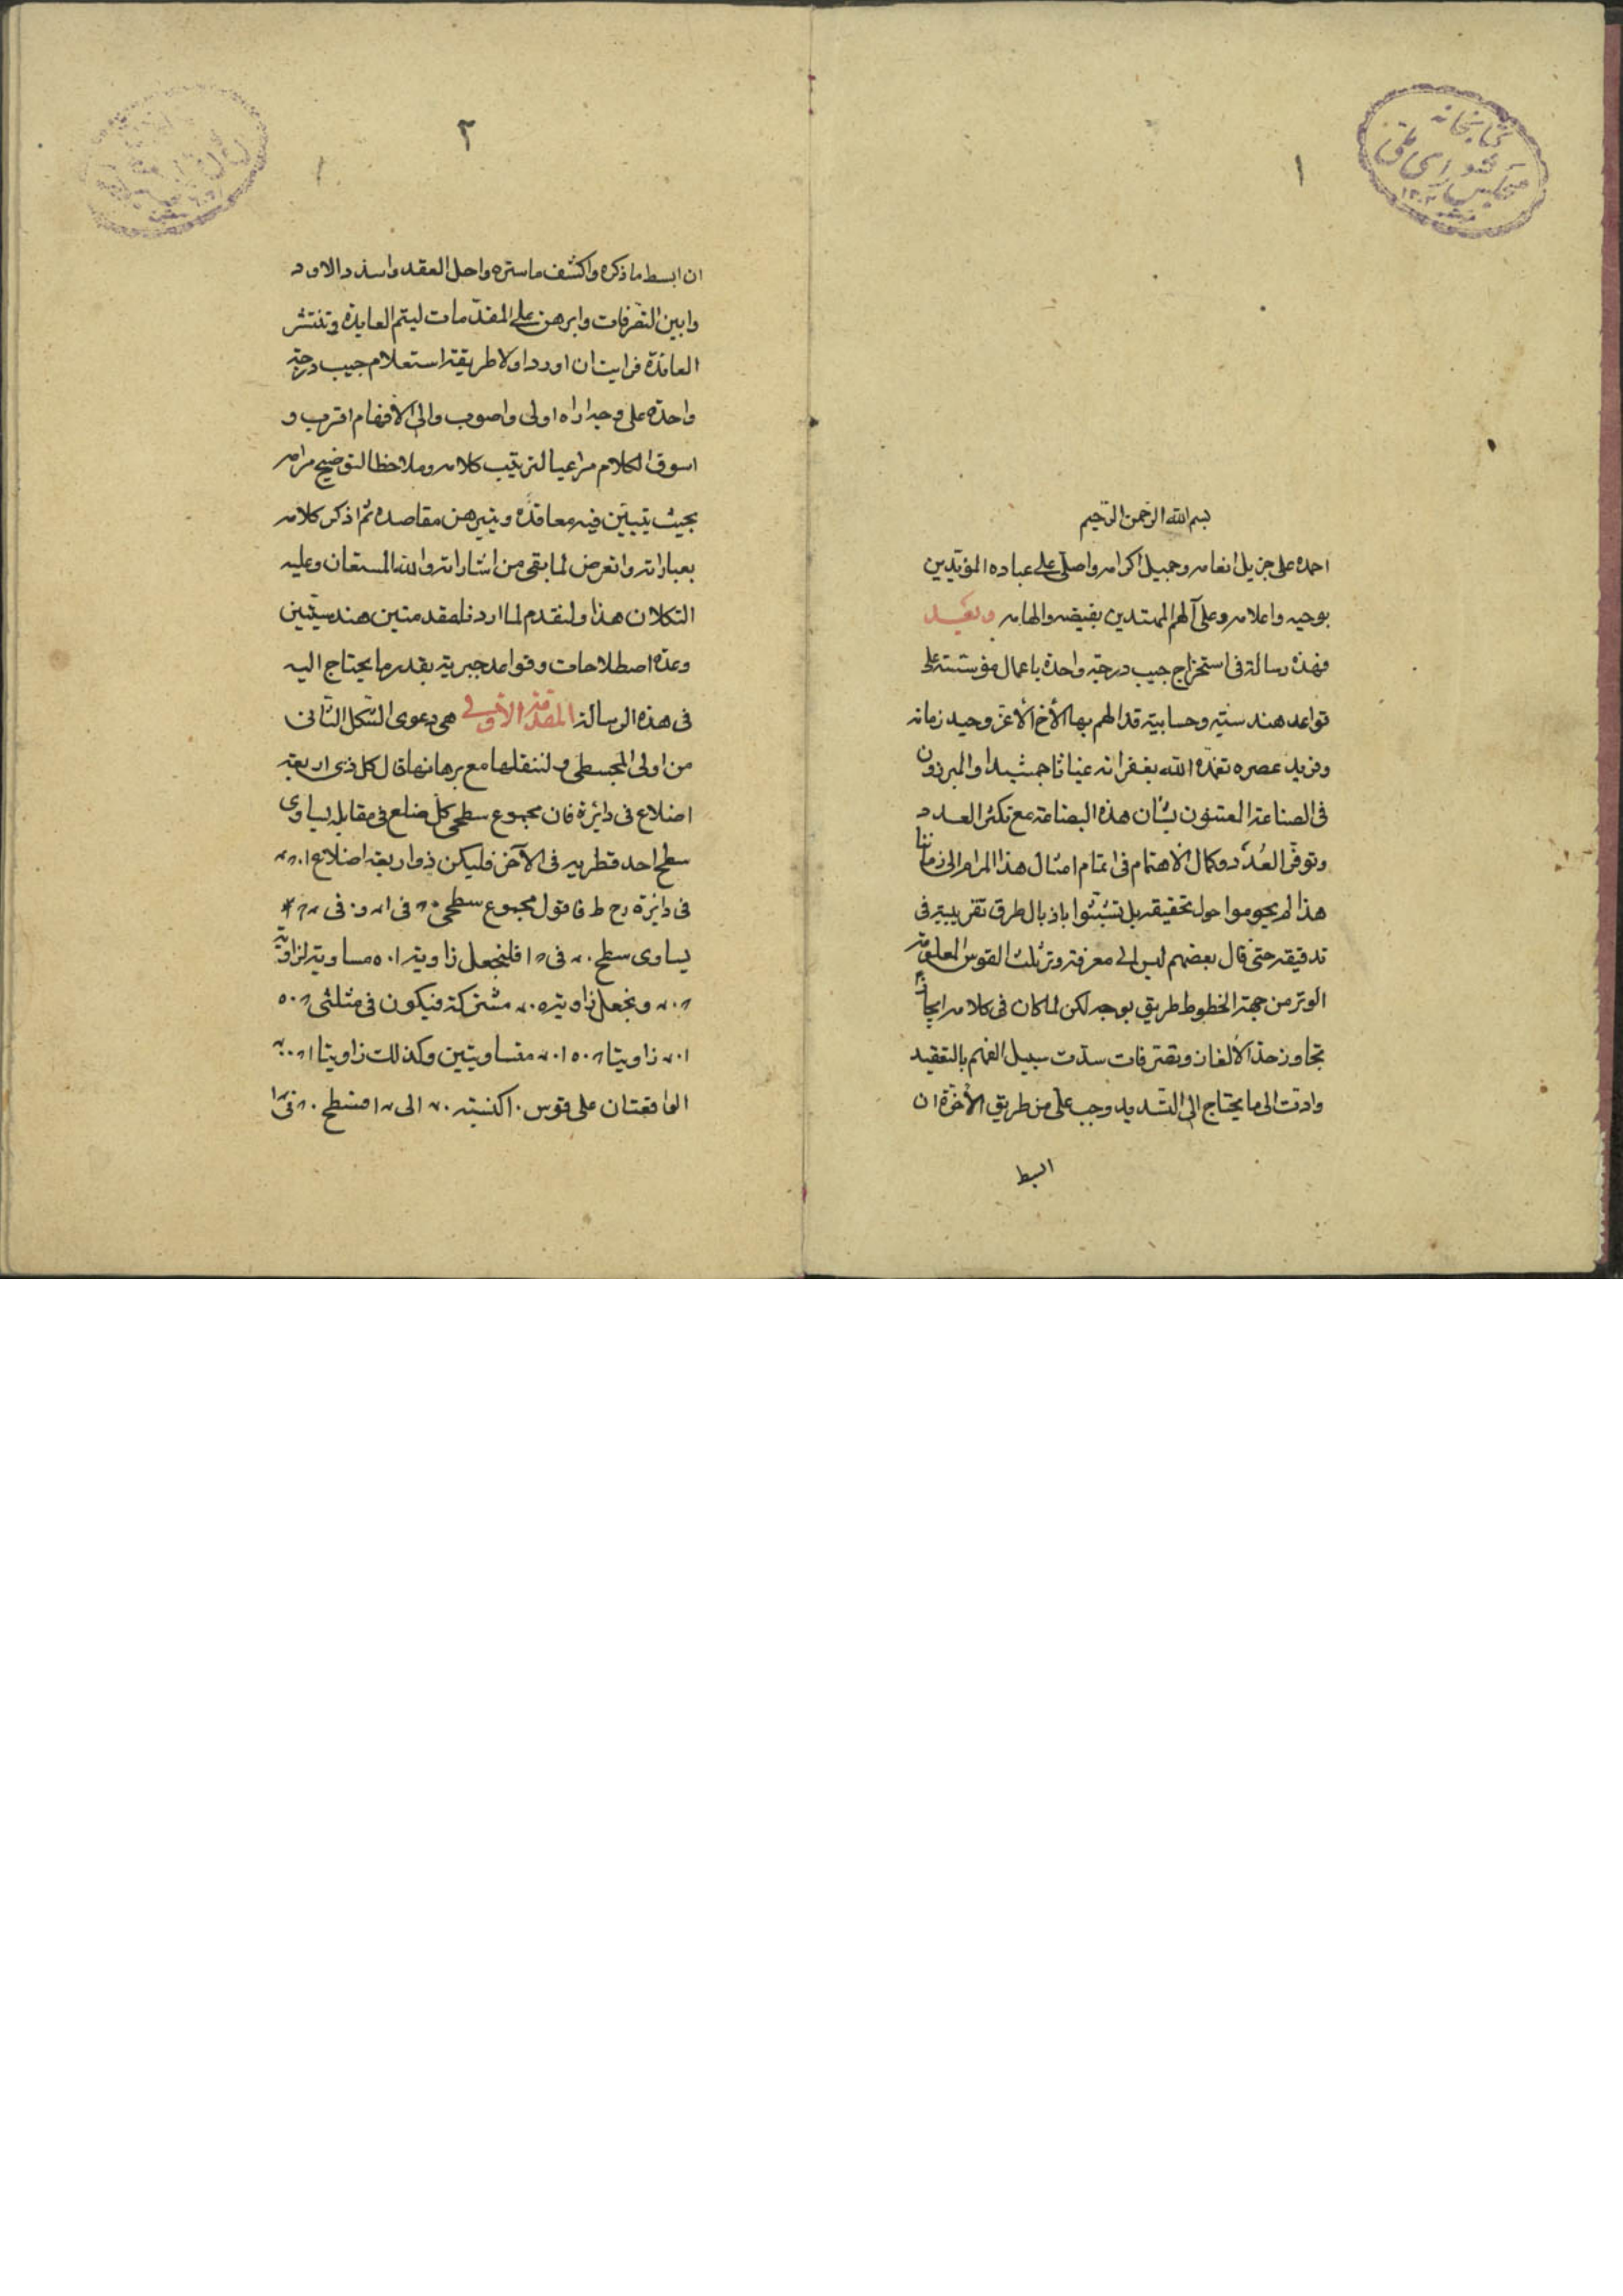 ١
كتابخانه
مجلس شورای ملی
بسم الله الرحمن الرحيم
احمده على جزيل انعامه وجميل اكرامه واصلى على عباده المؤيدين
بوحيه واعلامه وعلى آلهم المهتدين بفيضه والهامه وبعد
فهذه رسالة فى استخراج جيب درجة واحدة باعمال مؤسسة على
قواعد هندسية وحسابية قد الهم بها الأخ الأعز وحيد زمانه
وفريد عصره تغمده الله بغفرانه غياثا جمشيدا والمبرزون
فى الصناعة المعتنون بشان هذه البضاعة مع تكثر العدد
وتوفر العُدَد وكمال الاهتمام فى اتمام امثال هذا المرام الى زماننا
هذا لم يحوموا حول تحقيقه بل تشبثوا باذيال طرق تقريبية فى
تدقيقه حتى قال بعضهم ليس الى معرفة وتر ثلث القوس المعلومة
الوتر من جهة الخطوط طريق بوجه لكن لما كان فى كلامه ايجاز
تجاوز حد الألغاز وتصرفات سدت سبيل الفهم بالتعقيد
وادت الى ما يحتاج الى التسديد وجب على من طريق الأخوة ان
ابسط
٢
ان ابسط ما ذكره واكشف ما ستره واحل العقد واسدد الاود
وابين التصرفات وابرهن على المقدمات ليتم الفايدة وتنتشر
العائدة فرايت ان اورد اولا طريقة استعلام جيب درجة
واحدة على وجه اراه اولى واصوب والى الأفهام اقرب و
اسوق الكلام مراعيا لترتيب كلامه وملاحظا لتوضيح مرامه
بحيث يتبين فيه معاقده ويتبرهن مقاصده ثم اذكر كلامه
بعباراته واتعرض لما بقى من اشاراته والله المستعان وعليه
التكلان هذا ولنقدم لما اردنا مقدمتين هندسيتين
وعدة اصطلاحات وقواعد جبرية بقدر ما يحتاج اليه
فى هذه الرسالة المقدمة الأولى هى دعوى الشكل الثانى
من اولى المجسطى ولننقلها مع برهانها قال كل ذى اربعة
اضلاع فى دائرة فان مجموع سطحى كل ضلع فى مقابله يساوى
سطح احد قطريه فى الآخر فليكن ذو اربعة اضلاع
فى دائرة ح ط فاقول مجموع سطحى
يساوى سطح فى فلنجعل زاوية مساوية لزاوية
ونجعل زاوية مشتركة فيكون فى مثلثى
زاويتا متساويتين وكذلك زاويتا
الواقعتان على قوس كنسبة الى فسطح فى